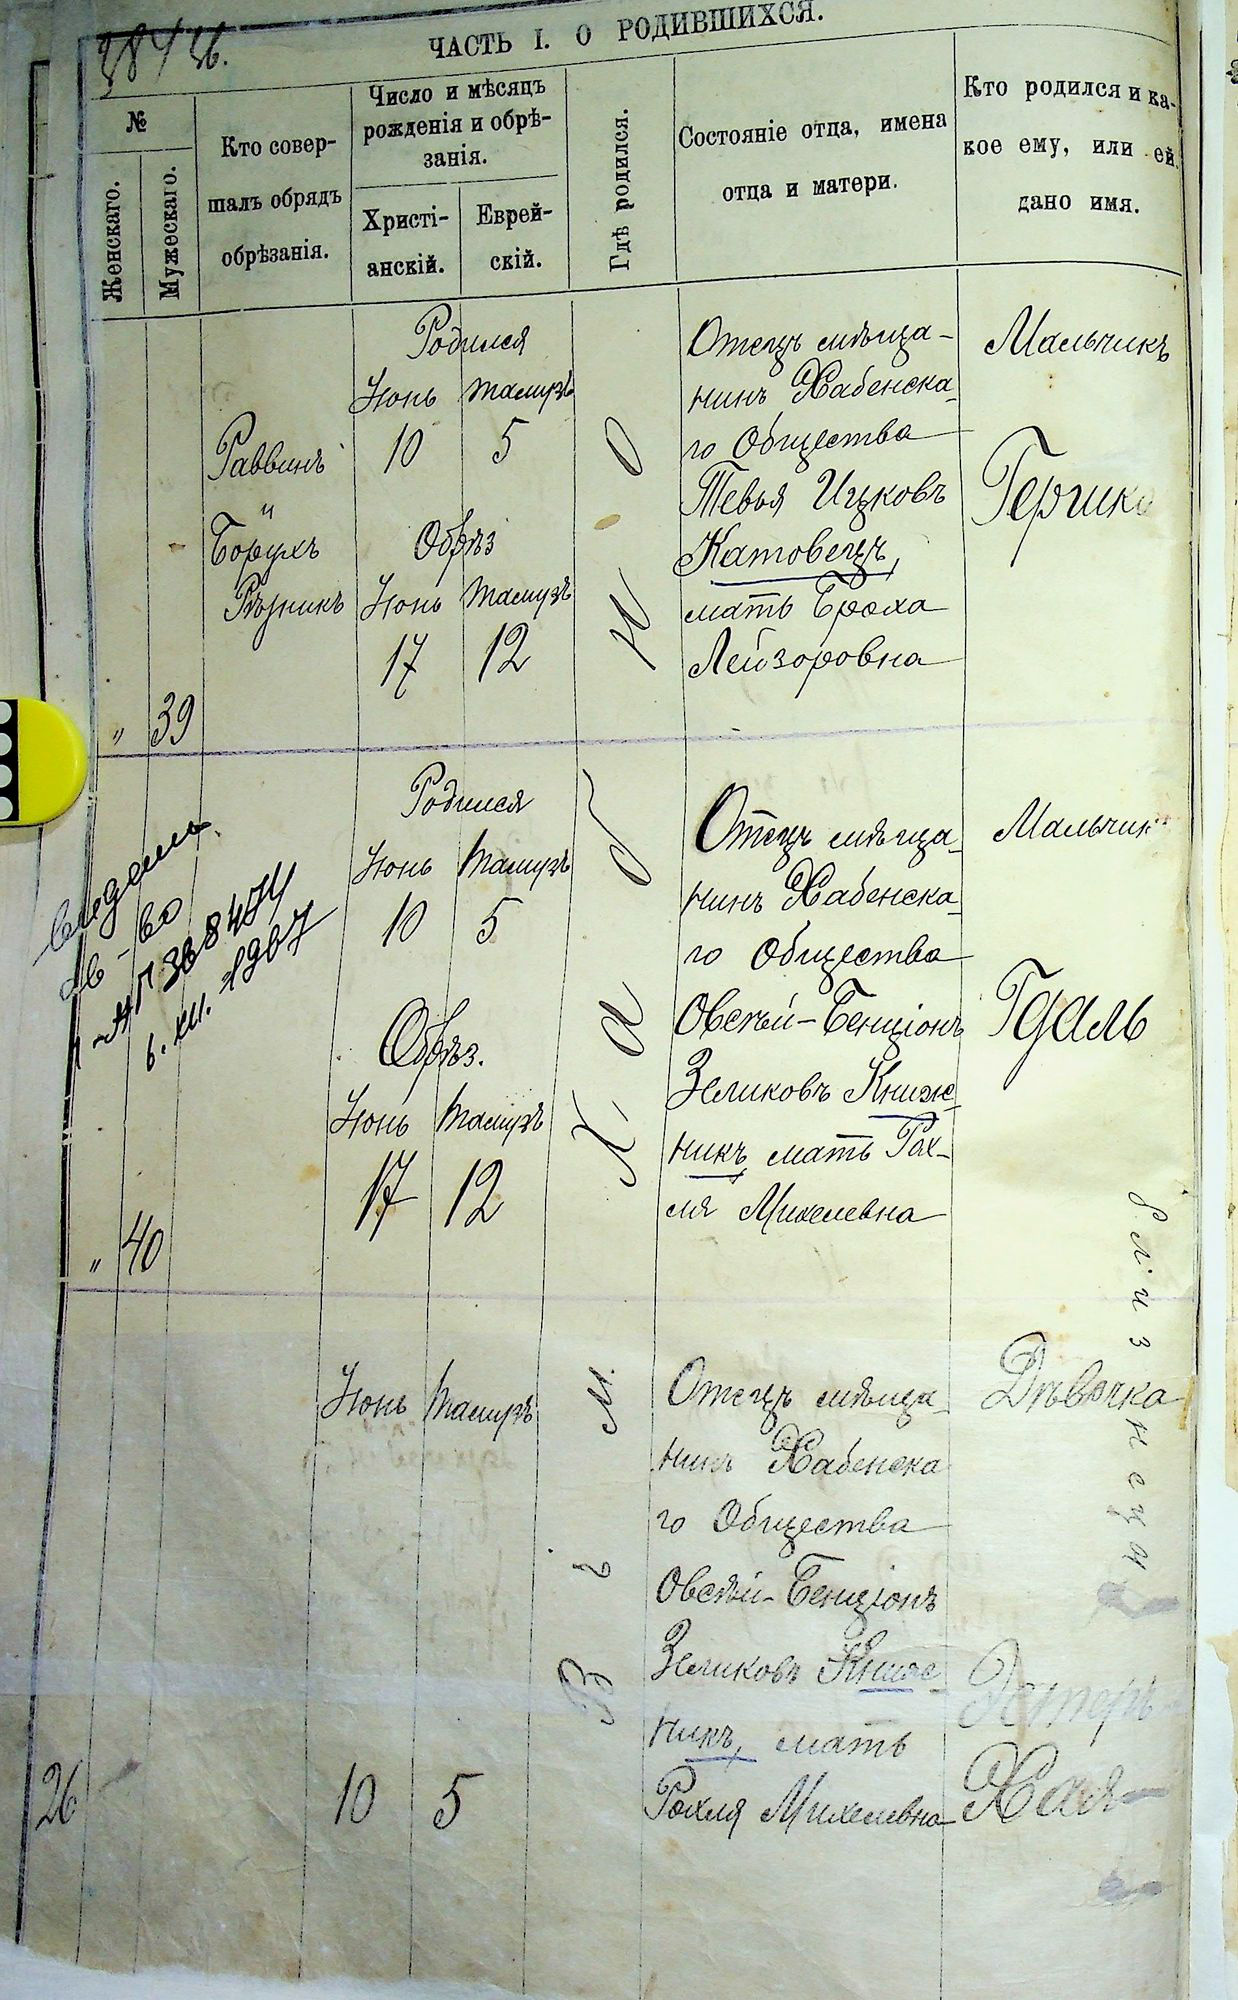 ЧАСТЬ I. О РОДИВШИХСЯ.
№
Женскаго.
Мужескаго.
Кто совер-
шалъ обрядъ
обрѣзанія.
Число и мѣсяцъ
рожденія и обрѣ-
занія.
Христі-
анскій.
Еврей-
скій.
Гдѣ родился.
Состояніе отца, имена
отца и матери.
Кто родился и ка-
кое ему, или ей
дано имя.
" 39
Раввинъ
"
Борухъ
Рѣзникъ
Родился
Іюнь Тамузъ
10 5
Обрѣз
Іюнь Тамузъ
17 12
Отецъ мѣща-
нинъ Хабенска-
го Общества
Тевья Ицковъ
Катовецъ,
мать Броха
Лейзоровна
Мальчикъ
Гершко
" 40
1967
Родился
Іюнь Тамузъ
10 5
Обрѣз.
Іюнь Тамузъ
17 12
Отецъ мѣща-
нинъ Хабенска-
го Общества
Овсѣй-Бенціонъ
Зеликовъ Книж-
никъ, мать Рах-
ля Михелевна
Мальчик
Гдаль
26
Іюнь Тамузъ
10 5
Отецъ мѣща-
нинъ Хабенска
го Общества
Овсѣй-Бенціонъ
Зеликовъ Книж-
никъ, мать
Рохля Михелевна
Дѣвочка
Эстеръ-
Хая
Въ м. Хабно
близнецы